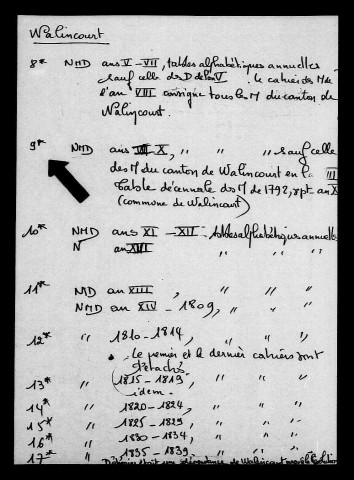 Walincourt
8* NMD ans V - VII, tables alphabétiques annuelles
sauf celle des D de l'an V. le cahier des M de
l'an VIII consigne tous les M du canton de
Walincourt.
9* NMD ans X, " " " sauf celle
des M du canton de Walincourt en l'a VIII
table décennale des M de 1792, spt-an X
(commune de Walincourt)
10* NMD ans XI - XII - tables alphabétiques annuelles
N an XIII " " "
11* MD an XIII, " " "
NMD an XIV - 1809, " " "
12* " 1810-1814, " " "
Le premier et le dernier cahiers sont
détachés.
13* " 1815-1819, " " "
idem.
14* " 1820-1824, " " "
15* " 1825-1829, " " "
16* " 1830-1834, " " "
17* " 1835-1839, " " "
de Walincourt